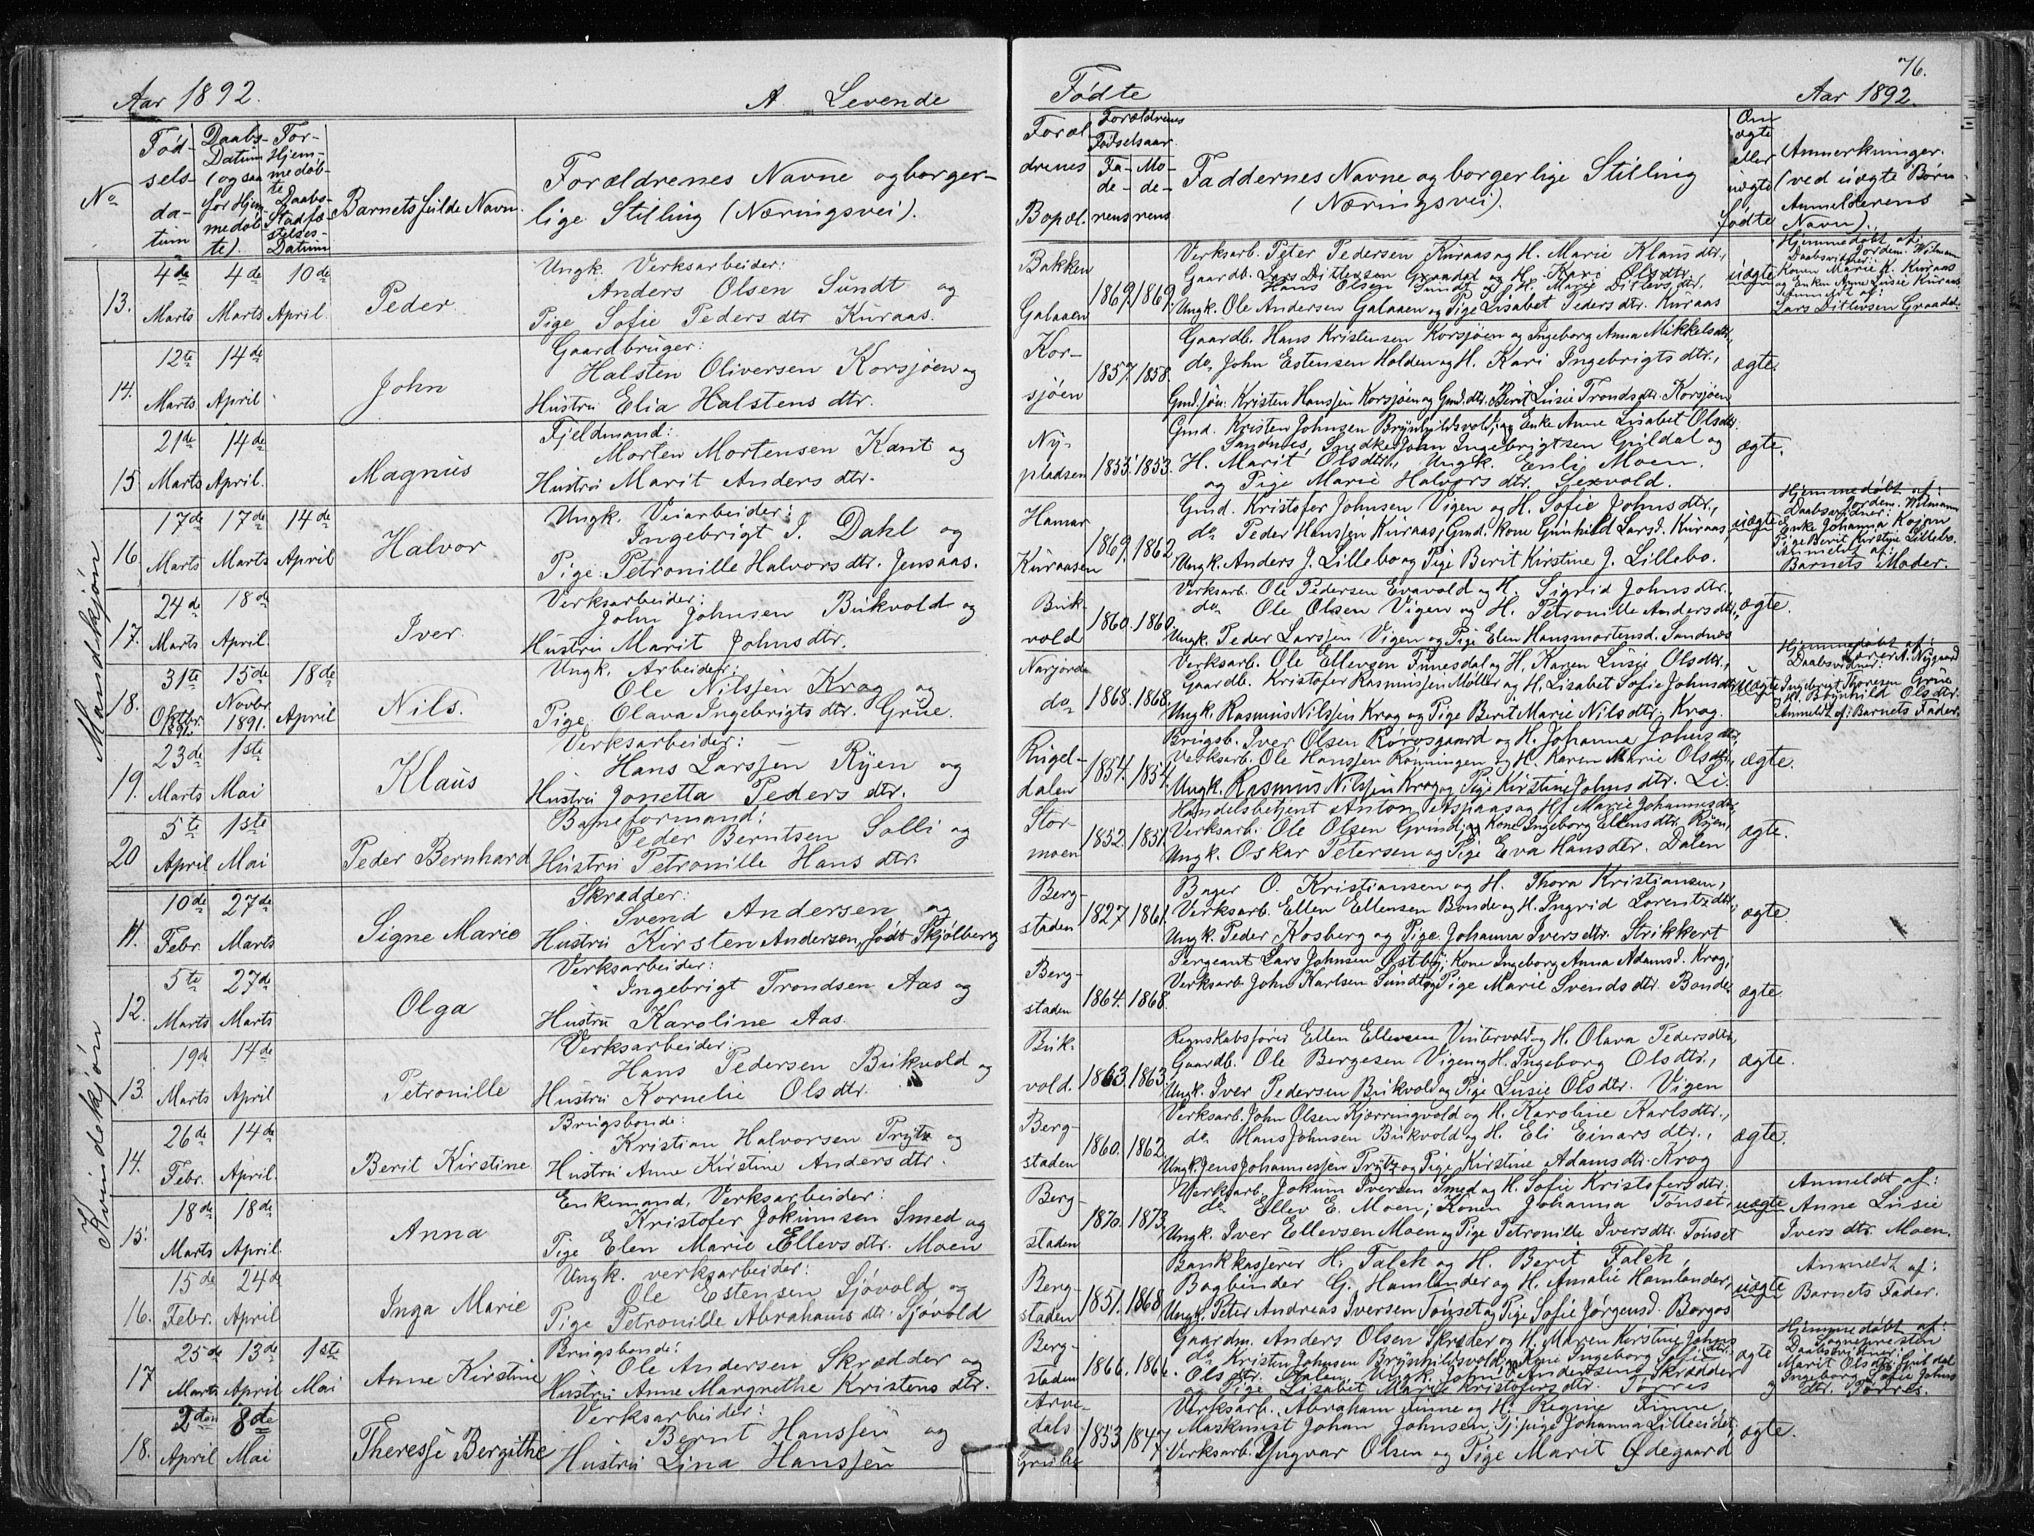 Aar 1892. A. Levende
No
Fødselsdatum
Daabs-Datum (ogsaa for Hjemmedøbte).
For Hjemmedøbte Daabs-Stadfæstelses-Datum
Barnets fulde Navn.
Forældrenes Navne og borgerlige Stilling (Næringsvei).
Mandskjøn
13. 4de Marts 4de Marts 10de April. Peder.
Ungk. Verksarbeider:
Anders Olsen Sundt og
Pige Sofie Pedersdtr Kuraas.
14. 12te Marts 14de April John
Gaardbruger:
Halsten Oliversen Korsjøen og
Hustru Elia Halstensdtr.
15 21de Marts 14de April. Magnus
Fjeldmand:
Morten Mortensen Kant og
Hustru Marit Andersdtr.
16. 17de Marts 17de Marts 14de April Halvor
Ungk. Veiarbeider:
Ingebrigt J. Dahl og
Pige Petronille Halvorsdtr. Jensaas.
17. 24de Marts 18de April. Iver.
Verksarbeider:
John Johnsen Bukvold og
Hustru Marit Johnsdtr.
18. 31te Oktbr. 1891. 15de Novbr 1891. 18de April Nils.
Ungk. Arbeider:
Ole Nilssen Krog og
Pige Olava Ingebrigtsdtr. Grue.
19. 23de Marts 1ste Mai Klaus
Verksarbeider:
Hans Larssen Ryen og
Hustru Jonetta Pedersdtr.
20 5te April 1ste Mai Peder Bernhard
Baneformand:
Peder Berntsen Solli og
Hustru Petronille Hansdtr.
Kvindekjøn
11. 10de Febr. 27de Marts Signe Marie
Skrædder:
Svend Andersen og
Hustru Kirsten Andersen, født Skjølberg
12. 5te Marts 27de Marts Olga
Verksarbeider:
Ingebrigt Trondsen Aas og
Hustru Karoline Aas.
13. 19de Marts 14de April Petronille
Verksarbeider:
Hans Pedersen Bukvold og
Hustru Kornelie Olsdtr.
14. 26de Febr. 14de April. Berit Kirstine
Brugsbonde:
Kristian Halvorsen Prytz og
Hustru Anne Kirstine Andersdtr.
15. 18de Marts 18de April. Anna
Enkemand, Verksarbeider:
Kristofer Jokumsen Smed og
Pige Elen Marie Ellevsdtr. Moen
16. 15de Febr. 24de April Inga Marie
Ungk. verksarbeider:
Ole Estensen Sjøvold og
Pige Petronille Abrahamsdtr. Sjøvold
17 25de Marts 13de April 1ste Mai Anne Kirstine
Brugsbonde:
Ole Andersen Skrædder og
Hustru Anne Margrethe Kristensdtr.
18. 2den April 8de Mai Theresje Bergithe
Verksarbeider:
Bernt Hanssen og
Hustru Lina Hanssen
76.
Fødte Aar 1892.
Forældrenes Bopæl.
Forældrenes Fødselsaar. Faderens Moderens
Faddernes Navne og borgerlige Stilling
(Næringsvei).
Om ægte eller uægte fødte
Anmerkninger.
(ved uægte Børn
Anmelderens
Navn).
Bakken Galaaen 1869. 1869.
Verksarb. Peter Pedersen Kuraas og H. Marie Klausdtr.,
Gaardb. Lars Ditlevsen Graadal og H. Kari Olsdtr.
Hans Olsen Sundt og H. Marie Ditlevsdtr.
Ungk. Ole Andersen Galaaen og Pige Lisabet Pedersdtr. Kuraas
uægte
Hjemmedøbt af:
Jordem. Wilmann
Daabsvidner:
Konen Marie K. Kuraas
og Enken Anne Lusie Kuraas
Anmeldt af:
Lars Ditlevsen Graadal.
Korsjøen 1857. 1858.
Gaardb. Hans Kristensen Korsjøen og Ingeborg Anna Mikkelsdtr.,
do. John Estensen Holden og H. Kari Ingebrigtsdtr.,
Gmd.søn. Kristen Hanssen Korsjøen og Gmd.dtr. Berit Lusie Trondsdtr. Korsjøen
ægte.
Nypladsen 1853. 1853.
Gmd. Kristen Johnsen Brynhildsvold og Enke Anne Lisabet Olsdtr.
Sandnes, Snedker John Ingebrigtsen Guldal og
H. Marit Olsdtr., Ungk. Moen.
og Pige Marie Halvorsdtr. Sexvold.
ægte.
Hamar Kuraasen 1869. 1862.
Gmd. Kristofer Johnsen Vigen og H. Sofie Johnsdtr.,
do. Peder Hanssen Kuraas, Gmd. kone Gunhild Larsd. Kuraas,
Ungk. Anders J. Lillebo og Pige Berit Kirstine J. Lillebo.
uægte
Hjemmedøbt af:
Jordem. Wilmann
Daabsvidner:
Enke Johanna Kojan
Pige Berit Kirstine Lillebo.
Anmeldt af:
Barnets Moder.
Bukvold 1860. 1860.
Verksarb. Ole Pedersen Evavold og H. Sigrid Johnsdtr.,
do. Ole Olsen Vigen og H. Petronille Andersdtr.,
Ungk. Peder Larssen Vigen og Pige Elen Hansmortensd. Sandnes
ægte.
Narjorde do. 1868. 1868.
Verksarb. Ole Ellevsen Finnesdal og H. Karen Lusie Olsdtr.,
Gaardb. Kristofer Rasmussen Møller og H. Lisabet Sofie Johnsdtr.
Ungk. Rasmus Nilssen Krog og Pige Berit Marie Nilsdtr. Krog.
uægte
Hjemmedøbt af:
Lærer A. Nygaard
Daabsvidner:
Ingebrigt Thoresen Grue
og H. Brynhild Olsdtr.
Anmeldt af: Barnets Fader.
Rugeldalen 1854. 1854.
Brugsb. Iver Olsen Rørosgaard og H. Johanna Johnsdtr.
Verksarb. Ole Hanssen Rønningen og H. Karen Marie Olsdtr.,
Ungk. Rasmus Nilssen Krog og Pige Kirstine Johnsdtr. Li.
ægte.
Stormoen 1852. 1851.
Handelsbetjent Anton Aspaas og H. Marie Johannesdtr.
Verksarb. Ole Olsen Grind, Kone Ingeborg Ellensdtr. Ryen,
Ungk. Oskar Petersen og Pige Eva Hansdtr. Dalen
ægte.
Bergstaden 1827. 1861.
Bager O. Kristiansen og H. Thora Kristiansen,
Verksarb. Ellen Ellensen Bonde og H. Ingrid Lorentzdtr.
Ungk. Peder Kosberg og Pige Johanna Iversdtr. Strikkert
ægte.
Bergstaden 1864. 1868.
Sergeant Lars Johnsen Østby, Kone Ingeborg Anna Adamsd. Krog,
Verksarb. John Karlsen Sundt og Pige Marie Svendsdtr. Bonde
ægte
Bukvold. 1863. 1863.
Regnskabsfører Ellen Ellevsen Vintervold og H. Olava Pedersdtr.
Gaardb. Ole Bergesen Vigen og H. Ingeborg Olsdtr.,
Ungk. Iver Pedersen Bukvold og Pige Lusie Olsdtr. Vigen
ægte.
Bergstaden 1860. 1862.
Verksarb. John Olsen Kjørringvold og H. Karoline Karlsdtr.,
do. Hans Johnsen Bukvold og H. Eli Einarsdtr.,
Ungk. Jens Johannessen Prytz og Pige Kirstine Adamsdtr. Krog
ægte.
Bergstaden 1870. 1873.
Verksarb. Jokum Iversen Smed og H. Sofie Kristofersdtr.
do. Ellev E. Moen, Konen Johanna Tønset,
Ungk. Iver Ellevsen Moen og Pige Petronille Iversdtr. Tønset
uægte
Anmeldt af:
Anne Lusie
Iversdtr. Moen.
Bergstaden 1851. 1868
Bankkasjerer H. Falck og H. Berit Falck,
Bogbinder G. Hamlander og H. Amalie Hamlander,
Ungk. Peter Andreas Iversen Tønset og Pige Sofie Jørgensd. Borgos
uægte
Anmeldt af:
Barnets Fader.
Bergstaden 1866. 1866.
Gaardm. Anders Olsen Skræder og H. Maren Kirstine Johnsdtr.
do. Kristen Johnsen Brynhildsvold, Kone Ingeborg Sofie
Olsdtr. Dalen, Ungk. John Andersen Skrædder
og Pige Lisabet Marie Kristofersdtr. Torres
ægte
Hjemmedøbt af:
Sognepresten
Daabsvidner:
Marit Olsdtr. Guldal
og Ingeborg Sofie Johnsdtr. Torres.
Arvedals Grube 1853 1847.
Verksarb. Abraham Finne og H. Regine Finne,
Maskinist Johan Johnsen, Tj.pige Johanna Lilleeidet,
Verksarb. Yngvar Olsen og Pige Marit Ødegaard
ægte.